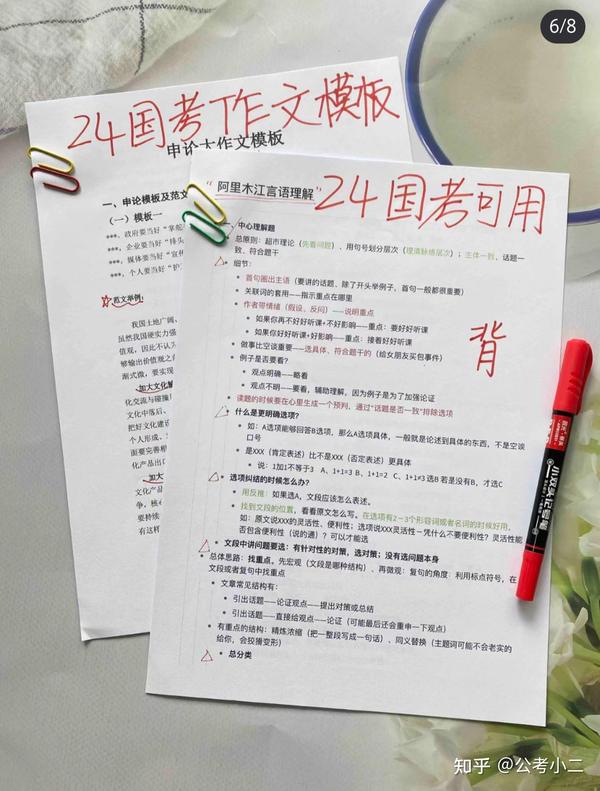 6/8
24国考作文模板
申论大作文模板
一、申论模板及范文
（一）模板一
***，政府要当好“掌舵
***，企业要当好“排头
***，媒体要当好“宣传
***，个人要当好“护
范文举例：
我国土地广阔
虽然我国硬实力强
值观，因此不认
够输出价值观之
潮式微，要实现
加大文化
化交流与碰撞
文化中落后，
把好文化建设
个人形成、
面要完善相
化产品出口
加大
文化产品
争，核心
要持续
有这样
24国考可用
“阿里木江言语理解”
背
中心理解题
总原则：超市理论（先看问题）、用句号划分层次（理清脉络层次）；主体一致、话题一
致、符合题干
细节：
首句圈出主语（要讲的话题，除了开头举例子，首句一般都很重要）
关联词的套用——指示重点在哪里
作者带情绪（假设、反问）——说明重点
如果你再不好好听课+不好影响——重点：要好好听课
如果你好好听课+好影响——重点：接着好好听课
做事比空谈重要——选具体、符合题干的（给女朋友买包事件）
例子是否要看？
观点明确——略看
观点不明——要看，辅助理解，因为例子是为了加强论证
读题的时候要在心里生成一个预判，通过“话题是否一致”排除选项
什么是更明确选项？
如：A选项能够回答B选项，那么A选项具体，一般就是论述到具体的东西，不是空谈
口号
是XXX（肯定表述）比不是XXX（否定表述）更具体
说：1加1不等于3 A、1+1=3 B、1+1=2 C、1+1≠3 选B 若是没有B，才选C
选项纠结的时候怎么办？
用反推：如果选A，文段应该怎么表述。
找到文段的位置，看看原文怎么写。在选项有2-3个形容词或者名词的时候好用，
如：原文说XXX的灵活性、便利性；选项说XXX灵活性－凭什么不要便利性？灵活性能
否包含便利性（说的通）？可以才能选
文段中讲问题要选：有针对性的对策，选对策；没有选问题本身
总体思路：找重点。先宏观（文段是哪种结构）、再微观：复句的角度：利用标点符号，在
文段或者复句中找重点
文章常见结构有：
引出话题——论证观点——提出对策或总结
引出话题——直接给观点——论证（可能最后还会重申一下观点）
有重点的结构：精炼浓缩（把一整段写成一句话）、同义替换（主题词可能不会老实的
给你，会狡猾变形）
总分类
小双头记号笔
知乎 @公考小二